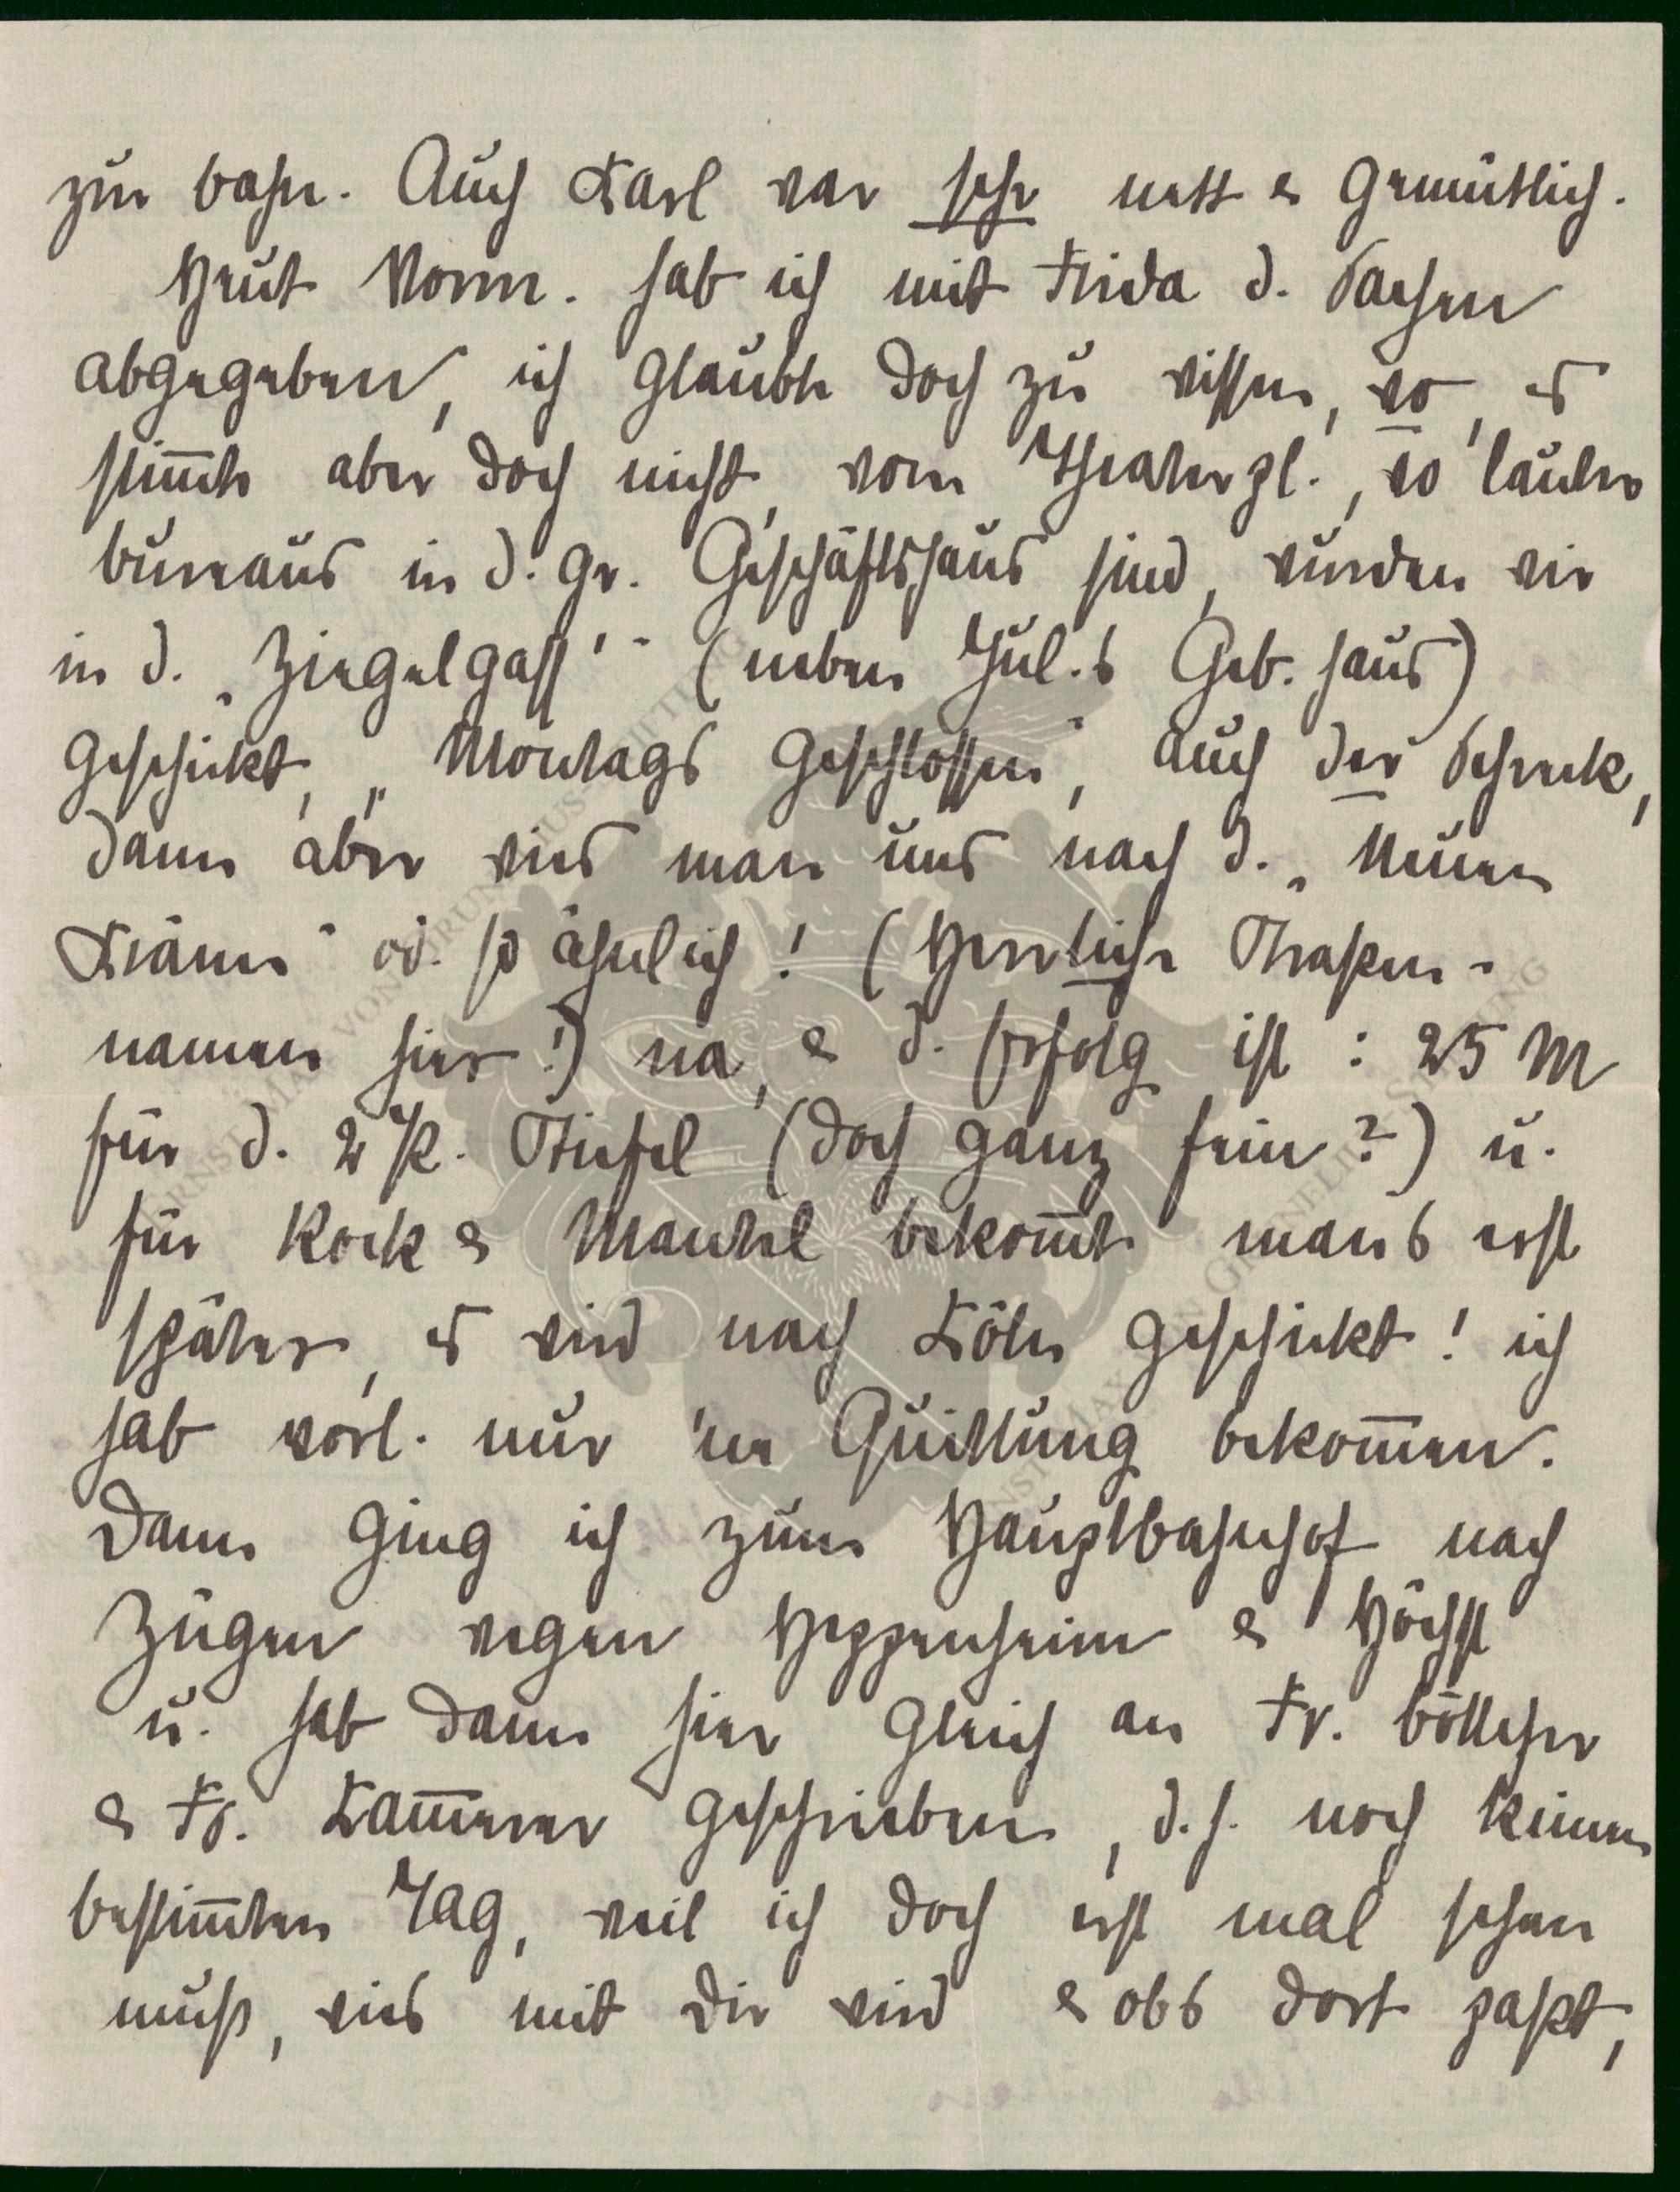 zur bahn. Auch Karl war sehr nett & gemütlich.
Heut Vorm. hab ich mit Frida d. Sachen
abgegeben, ich glaubte doch zu wissen, wo, es
stim̅te aber doch nicht, vom Theaterpl., wo lauter
bureaus in d. gr. Geschäftshaus sind, wurden wir
in d. „Ziegelgass'" (neben Jul.s Geb. haus)
geschickt, „Montags geschlossen", auch der Schreck,
dann aber wies man uns nach d. „Neuen
Kräme" od. so ähnlich! (Herrliche Straßen-
namen hier!) na, & d. Erfolg ist: 25 M
für d. 2 P. Stiefel (doch ganz fein?) u.
für Rock & Mantel bekom̅t man's erst
später, es wird nach Köln geschickt! ich
hab vorl. nur 'ne Quittung bekom̅en.
Dann ging ich zum Hauptbahnhof nach
Zügen wegen Heppenheim & Höchst
u. hab dann hier gleich an Fr. Böttcher
& Fr. Kam̅erer geschrieben, d.h. noch keinen
bestim̅ten Tag, weil ich doch erst mal sehen
muß, wies mit Dir wird & obs dort paßt,